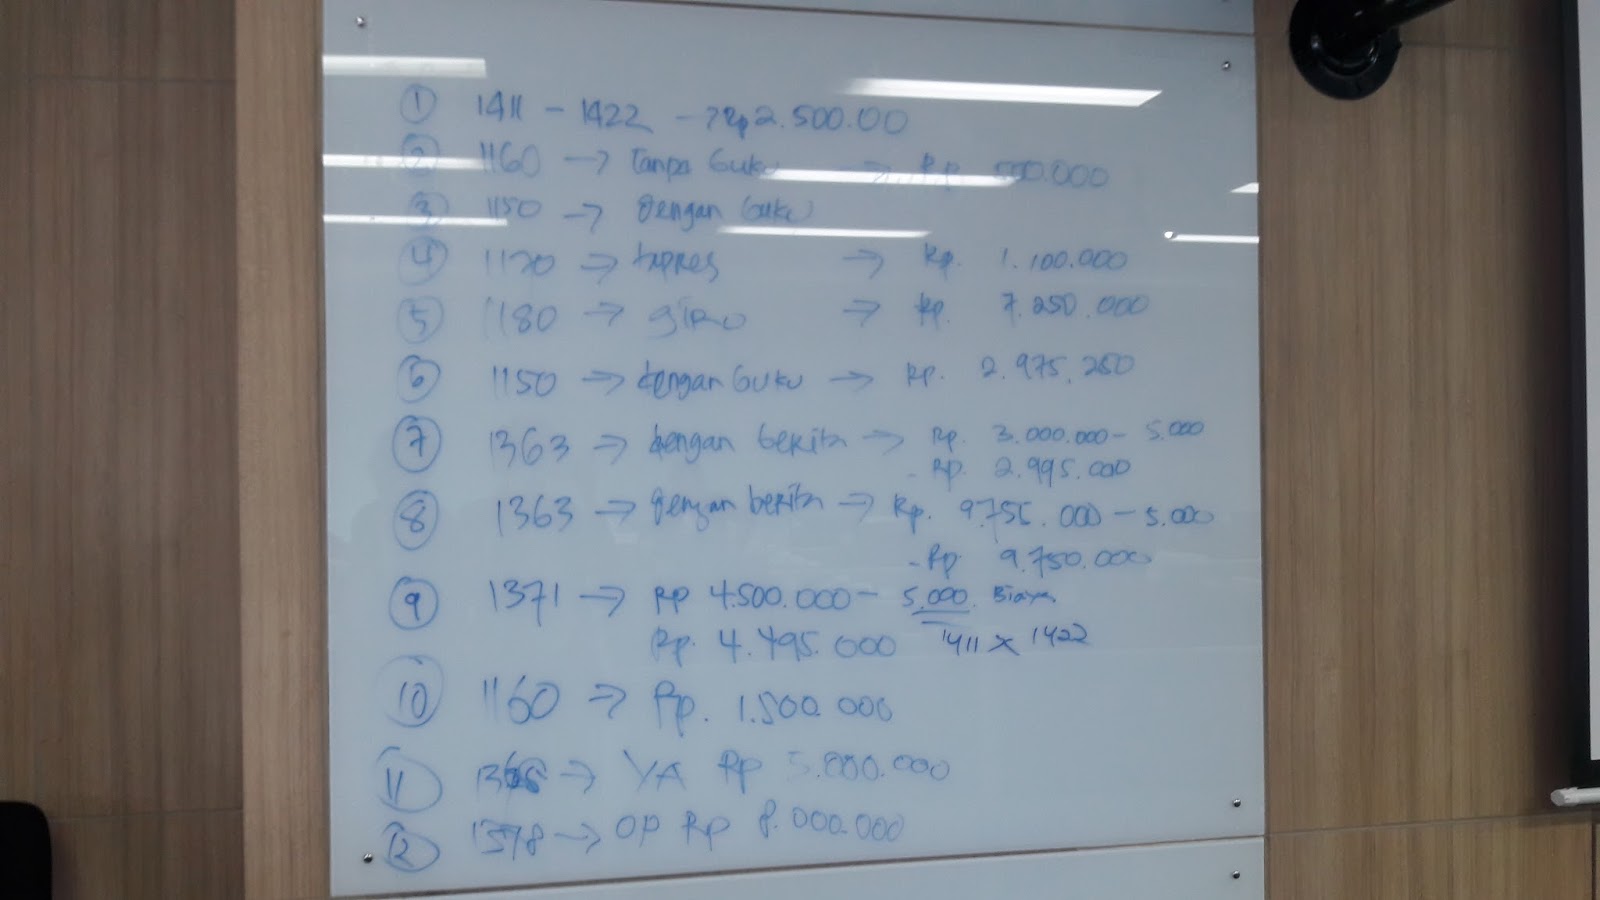 ① 1411 - 1422 → Rp 2.500.00
② 1160 → Tanpa buku → Rp. 500.000
③ 1150 → dengan buku
④ 1170 → → Rp. 1.100.000
⑤ 1180 → giro → Rp. 7.250.000
⑥ 1150 → dengan buku → Rp. 2.975.250
⑦ 1363 → dengan berita → Rp. 3.000.000 - 5.000
- Rp. 2.995.000
⑧ 1363 → dengan berita → Rp. 9.755.000 - 5.000
- Rp 9.750.000
⑨ 1371 → Rp 4.500.000 - 5.000 Biaya
Rp. 4.495.000 1411 x 1422
⑩ 1160 → Rp. 1.500.000
⑪ → YA Rp 5.000.000
⑫ → OP Rp 8.000.000